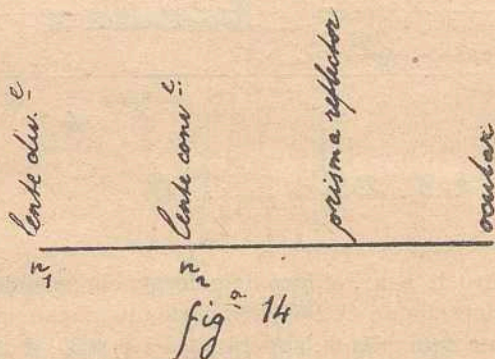 lente div.e
lente conv.e
prisma reflector
ocular
n1
n2
fig.a 14